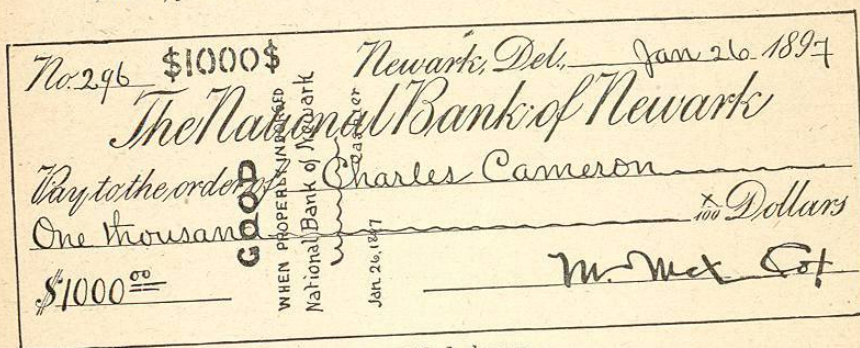 No. 296 $1000$ Newark, Del., Jan 26 1897
The National Bank of Newark
Pay to the order of Charles Cameron
One thousand x/100 Dollars
$1000.00
GOOD
WHEN PROPERLY INDORSED
National Bank of Newark
Cashier
Jan. 26, 1897